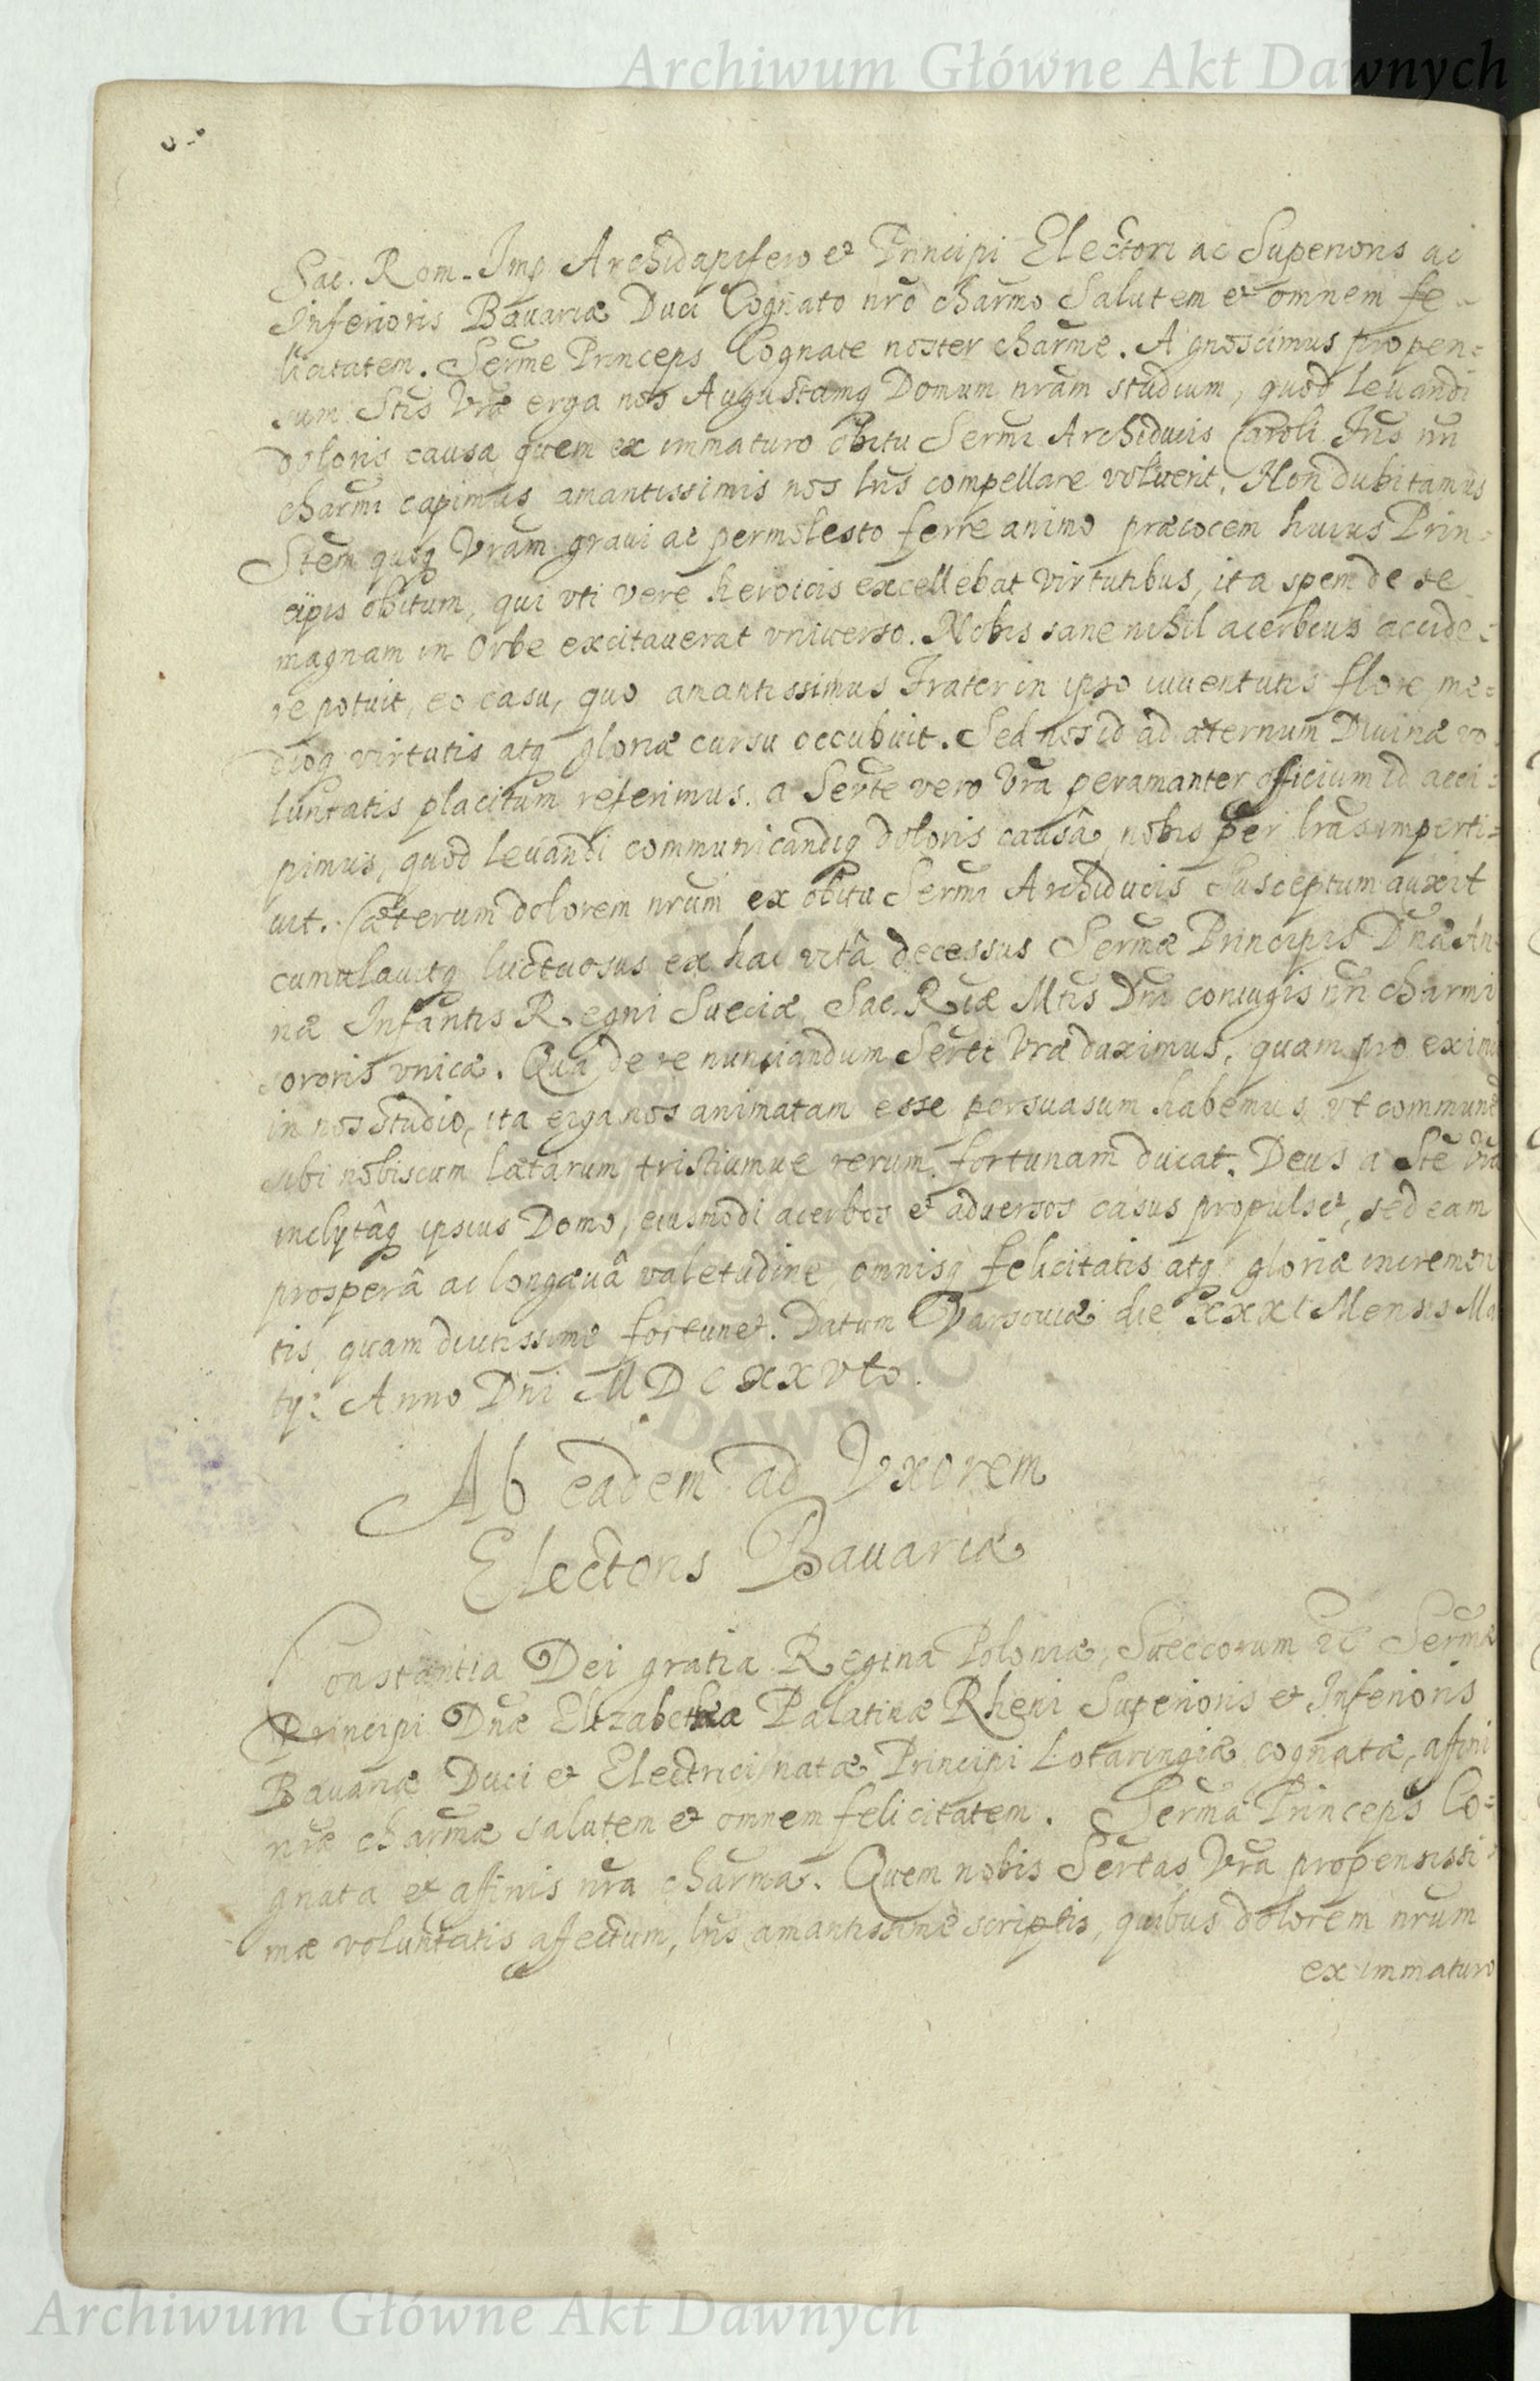 Archiwum Główne Akt Dawnych
Sac. Rom. Imp. Archidapifero et Principi Electori ac Superioris ac
Inferioris Bavariæ Duci Cognato nrõ charmo Salutem et omnem fe-
licitatem. Serme Princeps Cognate noster charme. Agnoscimus propen=
sum Stis Vræ erga nos Augustamq Domum nram studium, quod leuandi
doloris causa, quem ex immaturo obitu Sermi Archiducis Caroli Fris nri
charmi capimus, amantissimis nos lris compellare voluerit. Non dubitamus
Stem quoq Vram graui ac permolesto ferre animo præcocem huius Prin=
cipis obitum, qui vti vere heroicis excellebat virtutibus, ita spem de se
magnam in Orbe excitauerat vniuerso. Nobis sane nihil acerbius accide=
re potuit, eo casu, quo amantissimus Frater in ipso iuuentutis flore, me=
dioq virtutis atq gloriæ cursu occubuit. Sed nos id ad æternum Diuinæ vo
luntatis placitum referimus. a Serte vero Vra peramanter officium id acci=
pimus, quod leuandi communicandiq doloris causâ, nobis per lras imperti=
uit. Cæterum dolorem nrum ex obitu Sermi Archiducis susceptum auxit
cumulauitq luctuosus ex hac vitâ decessus Sermæ Principis Dnæ An
næ Infantis Regni Sueciæ, Sac. Riæ Mtis Dni coniugis nri charmi
sororis vnicæ. Qua de re nunciandum Serti Vræ duximus, quam pro eximio
in nos studio, ita erga nos animatam esse persuasum habemus, vt commune
sibi nobiscum lætarum tristiumue rerum fortunam ducat. Deus a Ste Vra
inclytâq ipsius Domo, eiusmodi acerbos et aduersos casus propulset, sed eam
prosperâ ac longæuâ valetudine, omnisq felicitatis atq gloriæ incremen
tis, quam diutissime fortunet. Datum Varsouiæ die XXXI Mensis Ma
ty: Anno Dni MDCXXVto.
Ab eadem ad Vxorem
Electoris Bauariæ
Constantia Dei gratia Regina Poloniæ, Sueccorum etc Sermæ
Principi Dnæ Elizabethæ Palatinæ Rheni Superioris et Inferioris
Bavariæ Duci et Electrici natæ Principi Lotaringiæ cognatæ, affini
nræ charmæ salutem et omnem felicitatem. Serma Princeps Co=
gnata et affinis nra charma. Quem nobis Sertas Vra propensissi=
mæ voluntatis affectum, lris amantissime scriptis, quibus dolorem nrum
ex immaturo
Archiwum Główne Akt Dawnych